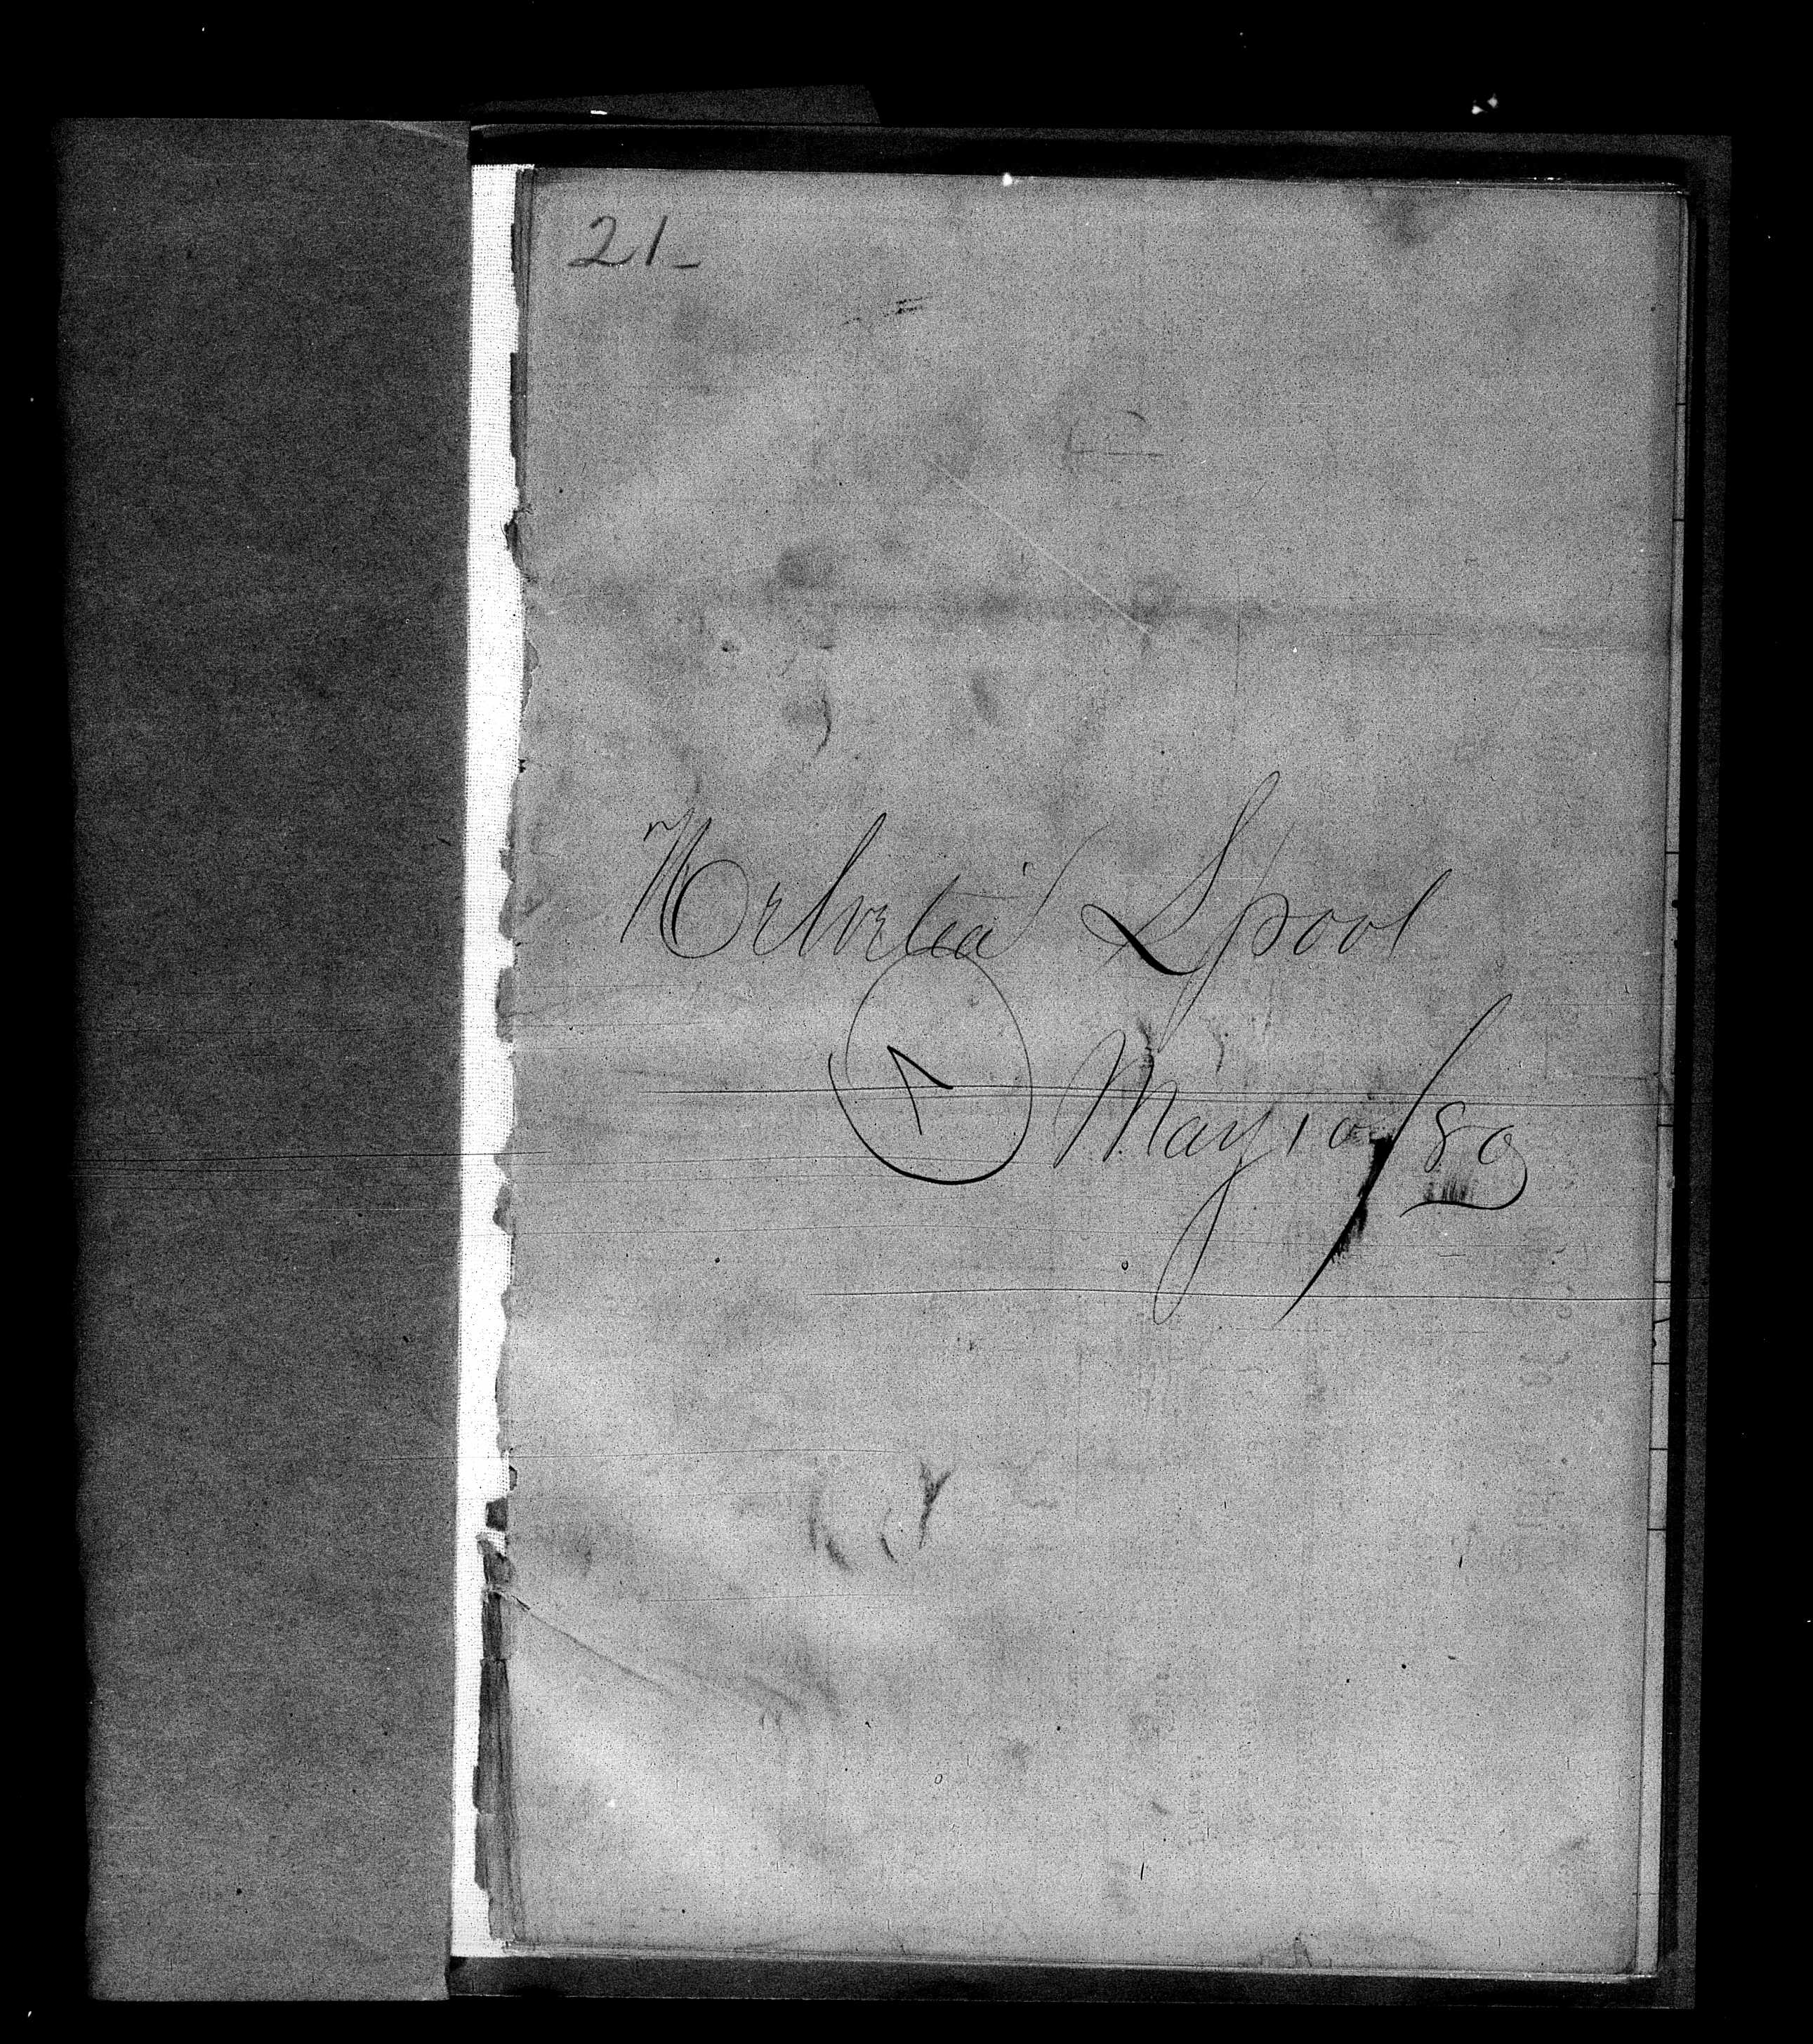 21_
Helvetia Lpool
7 May 10/80